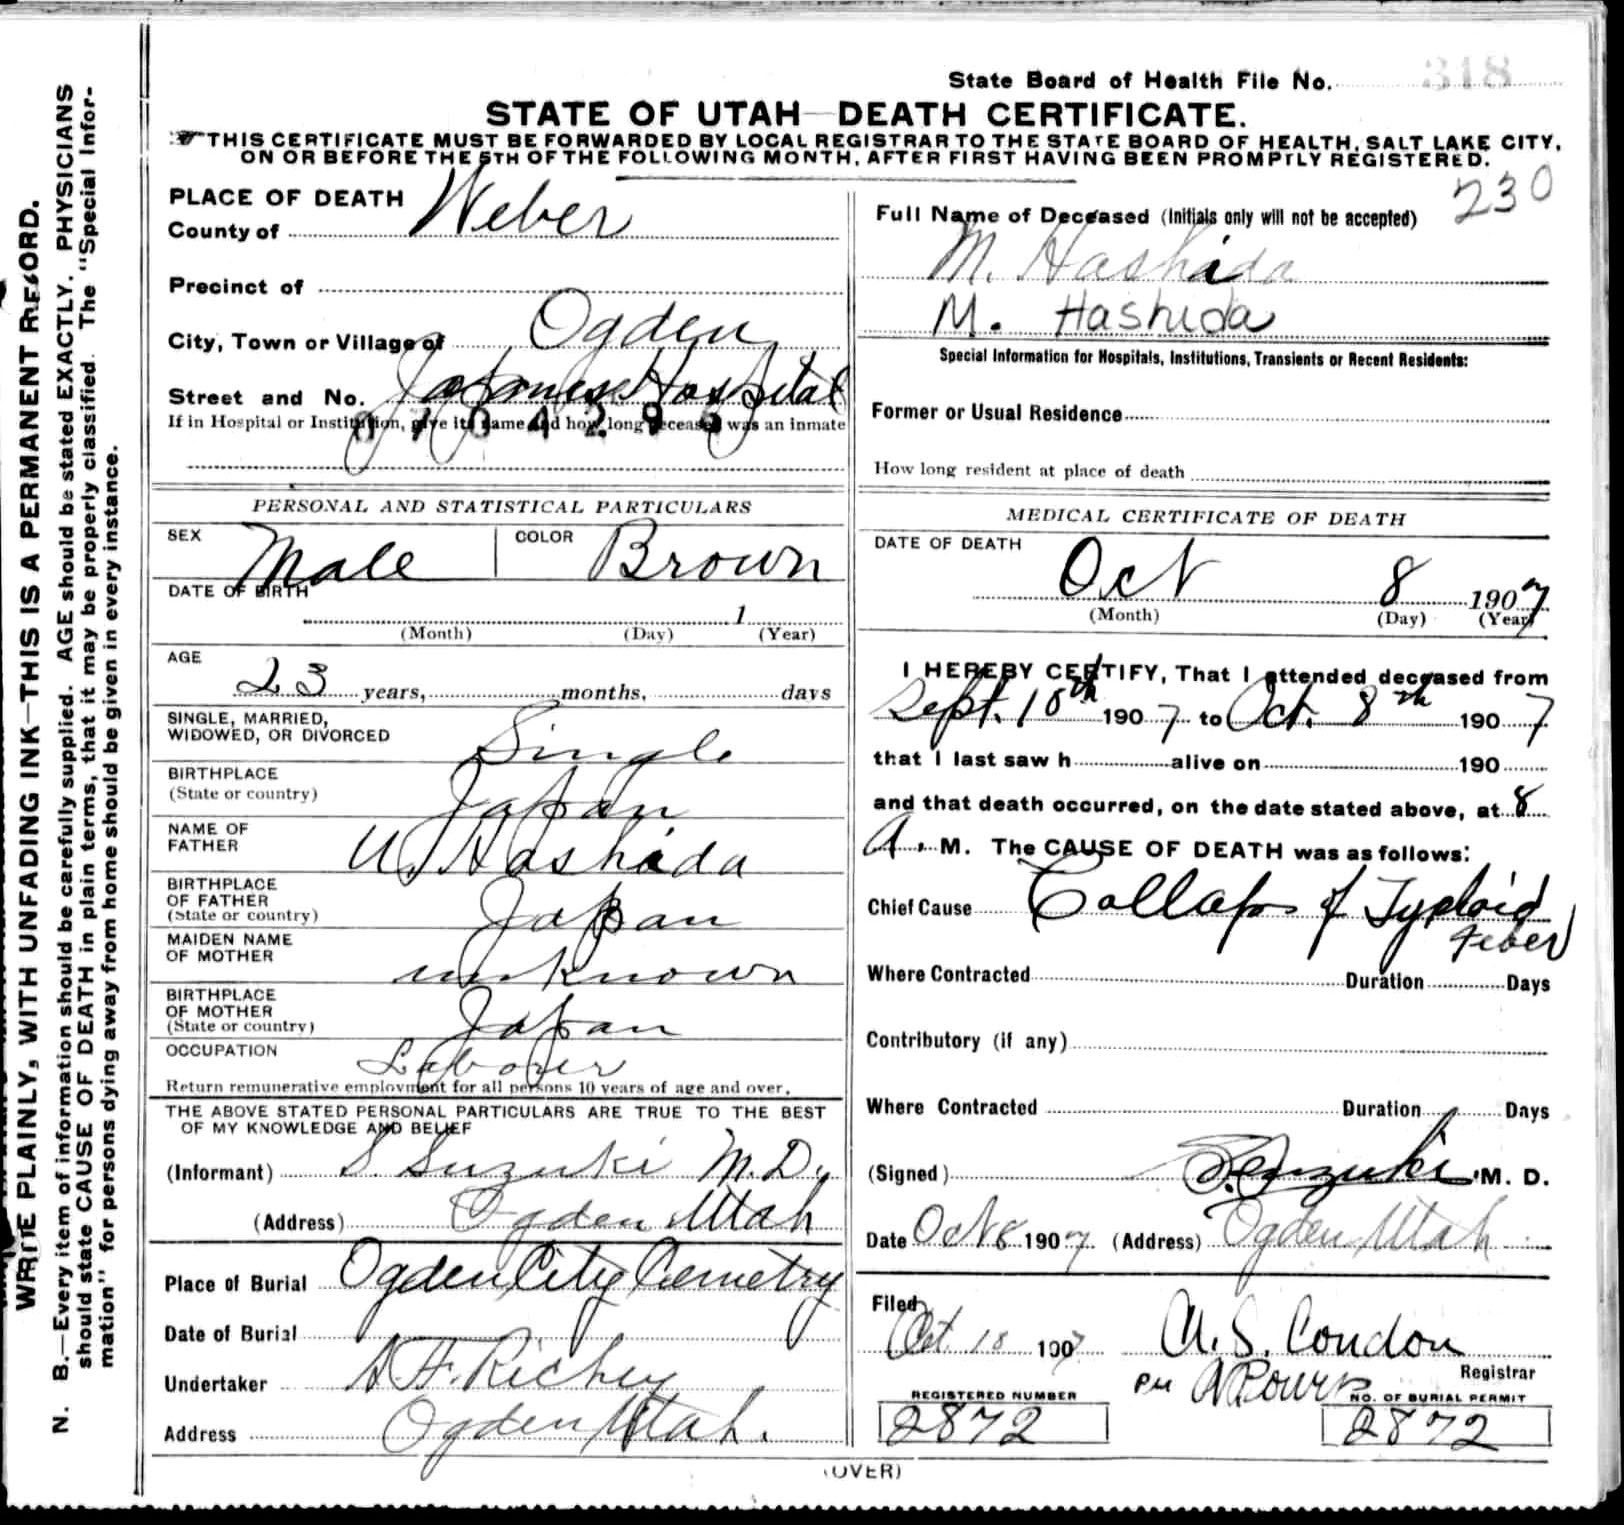 State Board of Health File No. 318
STATE OF UTAH—DEATH CERTIFICATE.
☞ THIS CERTIFICATE MUST BE FORWARDED BY LOCAL REGISTRAR TO THE STATE BOARD OF HEALTH, SALT LAKE CITY,
ON OR BEFORE THE 5TH OF THE FOLLOWING MONTH, AFTER FIRST HAVING BEEN PROMPTLY REGISTERED.
WRITE PLAINLY, WITH UNFADING INK—THIS IS A PERMANENT RECORD.
N. B.—Every item of information should be carefully supplied. AGE should be stated EXACTLY. PHYSICIANS
should state CAUSE OF DEATH in plain terms, that it may be properly classified. The "Special Infor-
mation" for persons dying away from home should be given in every instance.
PLACE OF DEATH
County of Weber
Precinct of
City, Town or Village of Ogden
Street and No. Japanese Hospital
If in Hospital or Institution, give its name and how long deceased was an inmate
PERSONAL AND STATISTICAL PARTICULARS
SEX Male COLOR Brown
DATE OF BIRTH
1
(Month) (Day) (Year)
AGE
23 years, months, days
SINGLE, MARRIED,
WIDOWED, OR DIVORCED Single
BIRTHPLACE
(State or country) Japan
NAME OF
FATHER U. Hashida
BIRTHPLACE
OF FATHER
(State or country) Japan
MAIDEN NAME
OF MOTHER unknown
BIRTHPLACE
OF MOTHER
(State or country) Japan
OCCUPATION Laborer
Return remunerative employment for all persons 10 years of age and over.
THE ABOVE STATED PERSONAL PARTICULARS ARE TRUE TO THE BEST
OF MY KNOWLEDGE AND BELIEF
(Informant) S. Suzuki M.D.
(Address) Ogden Utah
Place of Burial Ogden City Cemetry
Date of Burial
Undertaker Richey
Address Ogden Utah.
230
Full Name of Deceased (Initials only will not be accepted)
M. Hashida
M. Hashida
Special Information for Hospitals, Institutions, Transients or Recent Residents:
Former or Usual Residence
How long resident at place of death
MEDICAL CERTIFICATE OF DEATH
DATE OF DEATH
Oct 8 1907
(Month) (Day) (Year)
I HEREBY CERTIFY, That I attended deceased from
Sept. 18th 1907 to Oct. 8th 1907
that I last saw h alive on 190
and that death occurred, on the date stated above, at 8
A. M. The CAUSE OF DEATH was as follows:
Chief Cause Collaps of Typhoid
Fiber
Where Contracted Duration Days
Contributory (if any)
Where Contracted Duration Days
(Signed) S. Suzuki M. D.
Date Oct 8 1907 (Address) Ogden Utah
Filed
Oct 18 1907 A. S. Condon
Registrar
per
REGISTERED NUMBER NO. OF BURIAL PERMIT
2872 2872
(OVER)